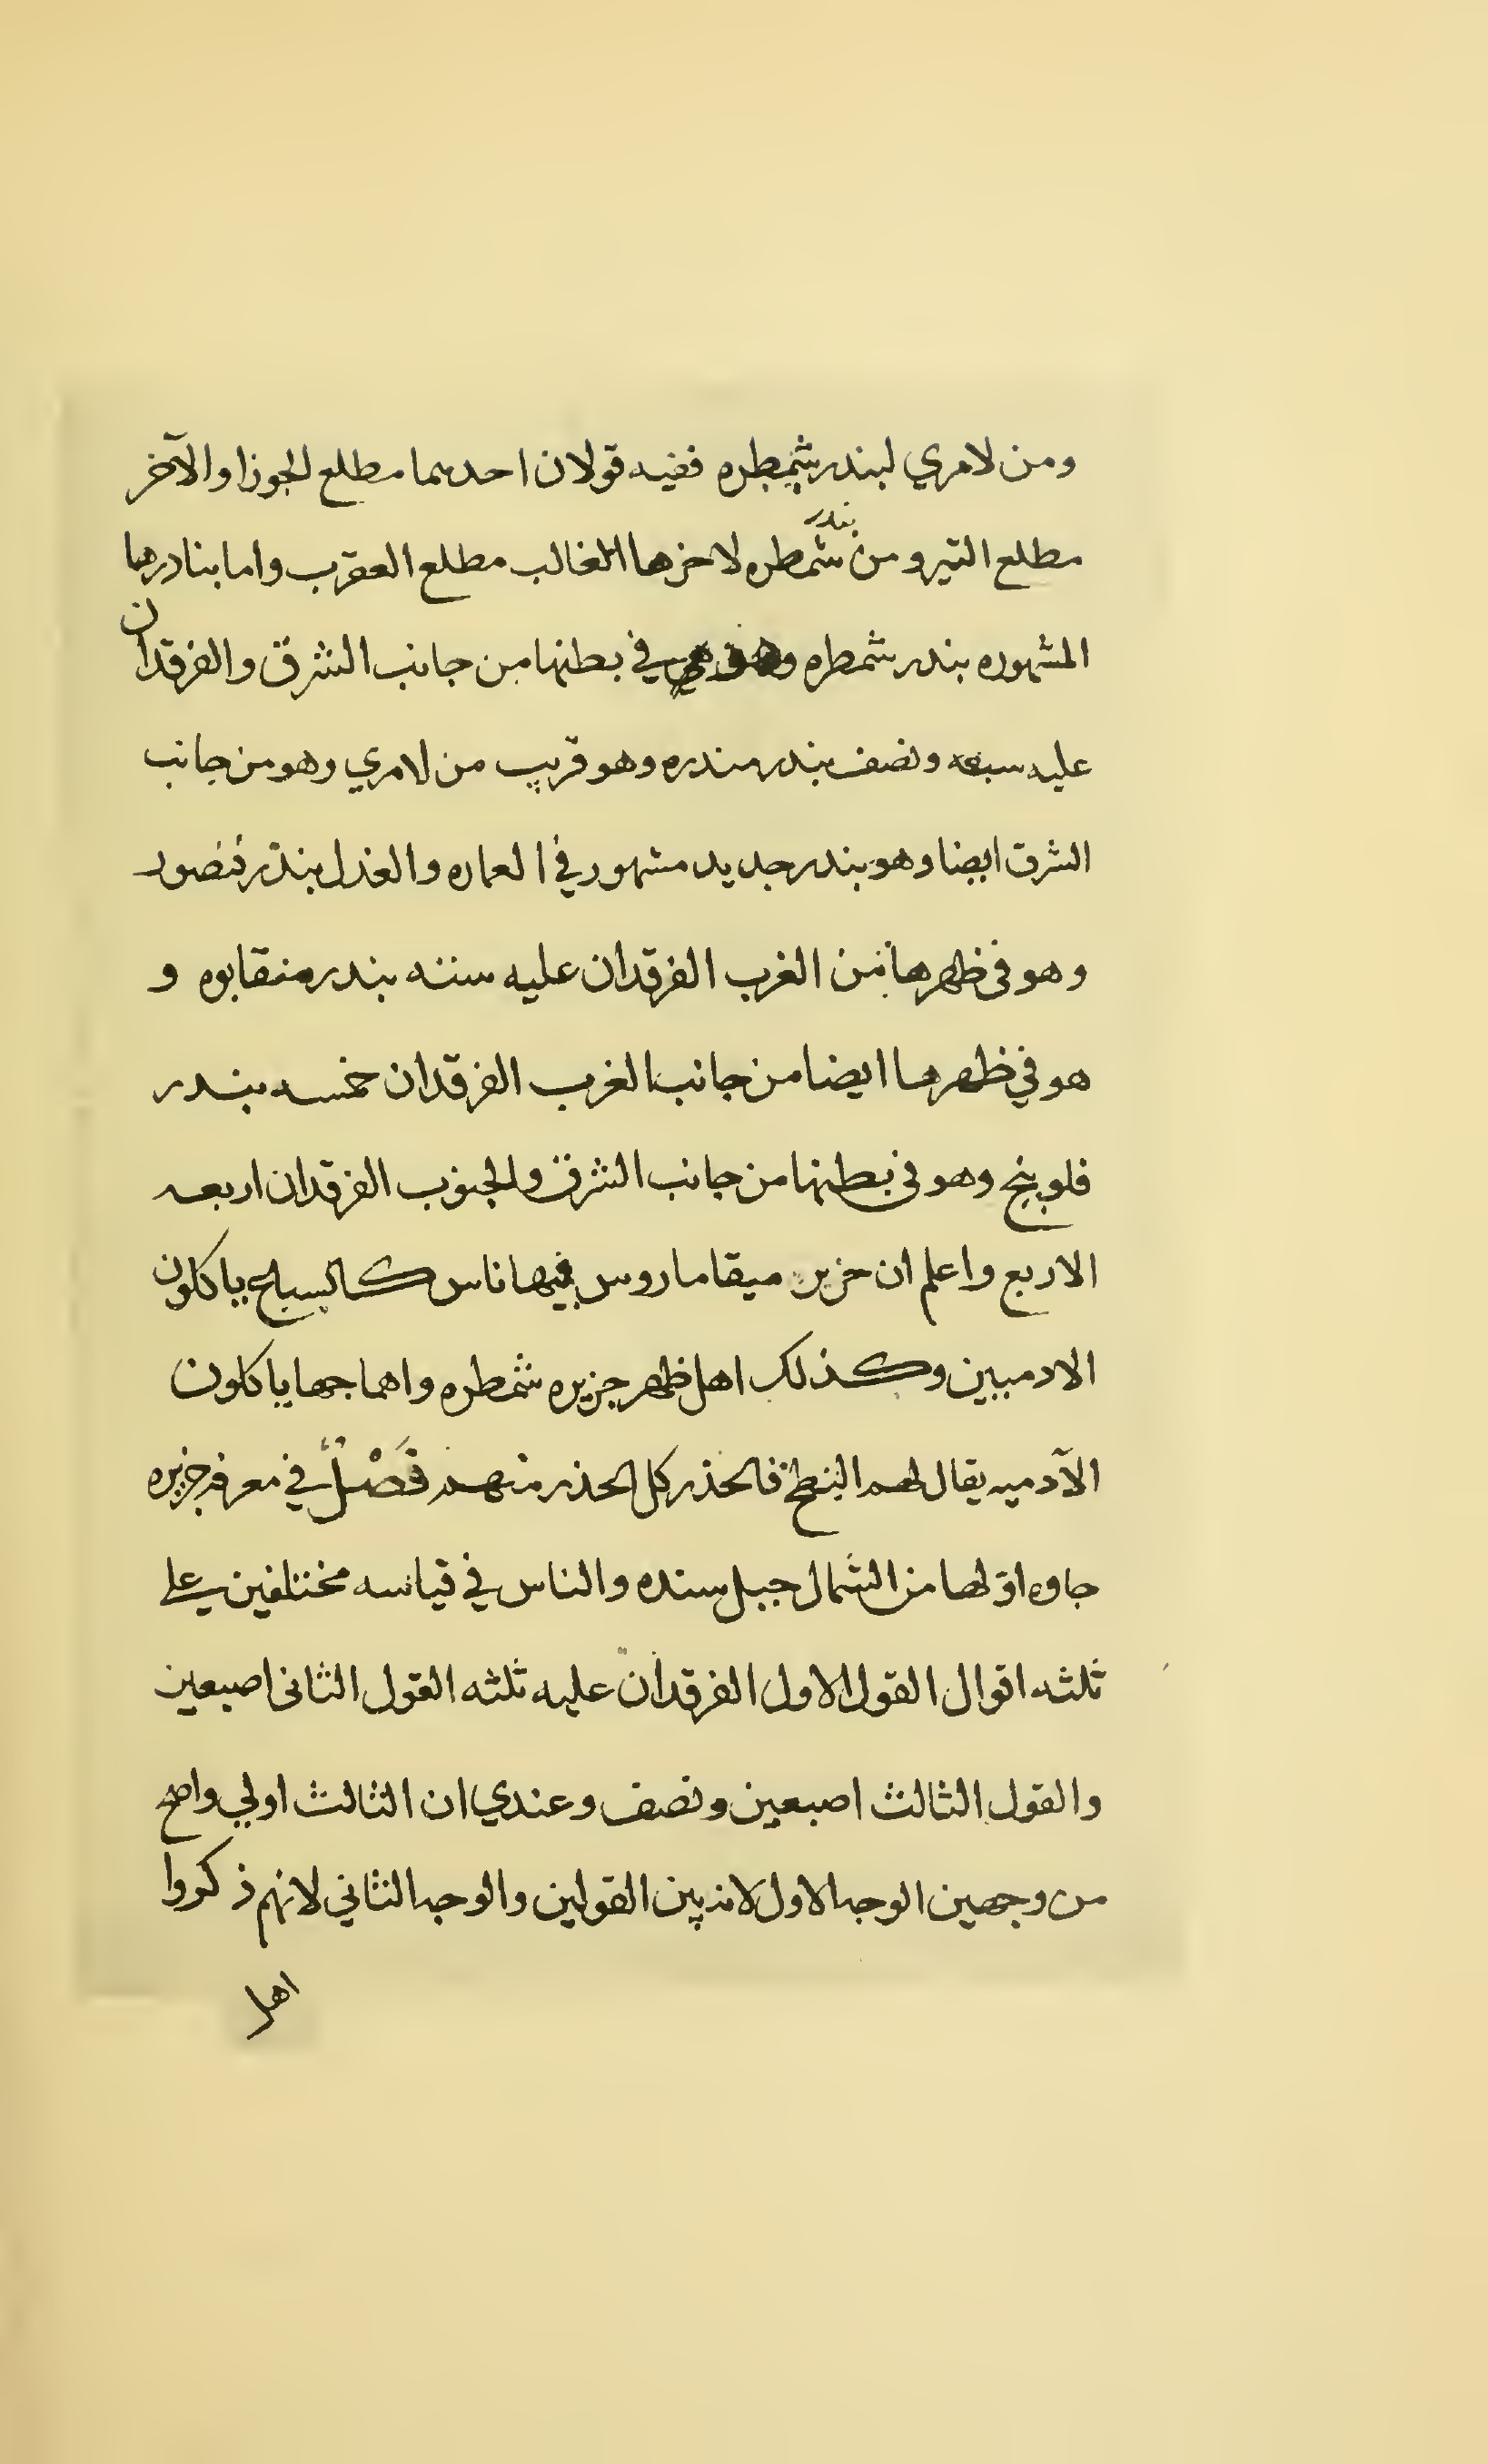 ومن لامري لبندر شمطره ففيه قولان احدهما مطلع الجوزا والآخر
بندر
مطلع التير ومن شمطره لاخرها الغالب مطلع العقرب واما بنادرها
المشهوره بندر شمطره وهو في بطنها من جانب الشرق والفرقدان
عليه سبعه ونصف بندر مندره وهو قريب من لامري وهو من جانب
الشرق ايضا وهو بندر جديد مشهور في العماره والعدل بندر فنصور
وهو في ظهرها من الغرب الفرقدان عليه سته بندر منقابوه و
هو في ظهرها ايضا من جانب الغرب الفرقدان خمسه بندر
فلوبنج وهو في بطنها من جانب الشرق والجنوب الفرقدان اربعه
الاربع واعلم ان جزير ميقاماروس فيها ناس كالسباع ياكلون
الادميين وكذلك اهل ظهر جزيره شمطره واهما جها ياكلون
الآدميه يقال لهم فالحذر كل الحذر منهم فَصْلٌ في معرفه جزيره
جاوه اوّلها من الشمال جبل سنده والناس في قياسه مختلفين على
ثلثه اقوال القول الاول الفرقدان عليه ثلثه القول الثاني اصبعين
والقول الثالث اصبعين ونصف وعندي ان الثالث اولي واصح
من وجهين الوجه الاول لانه بين القولين والوجه الثاني لانهم ذكروا
اهل